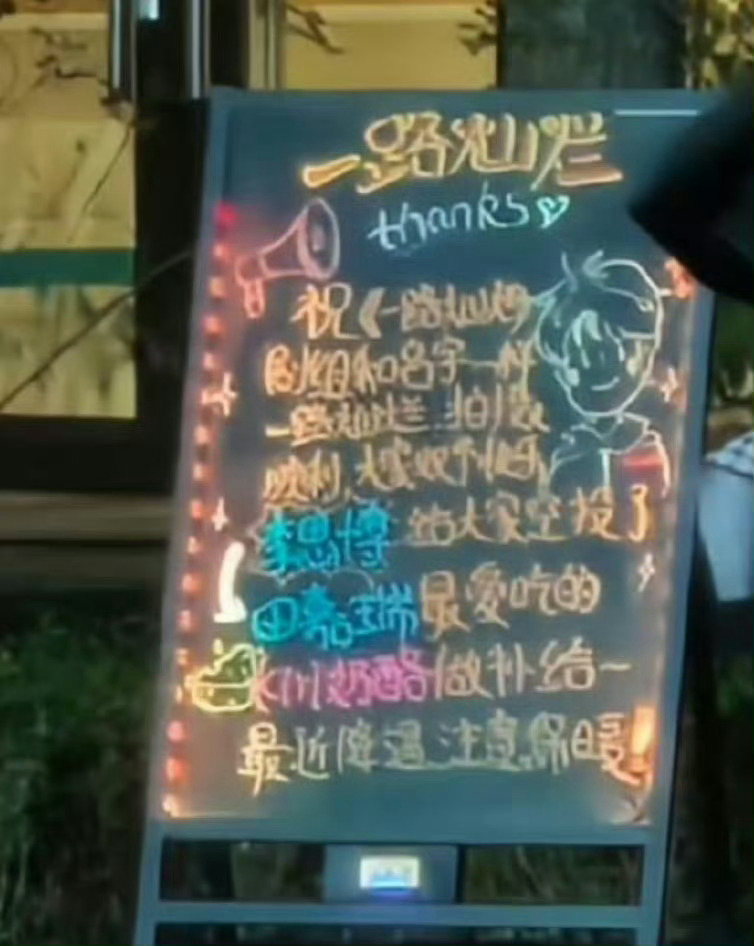 一路灿烂
thanks
祝《一路灿烂
剧组和名字一样
一路灿烂 拍摄
顺利,大家收
李思博 给大家空投了
田嘉瑞 最爱吃的
奶酪 做补给~
最近降温 注意保暖